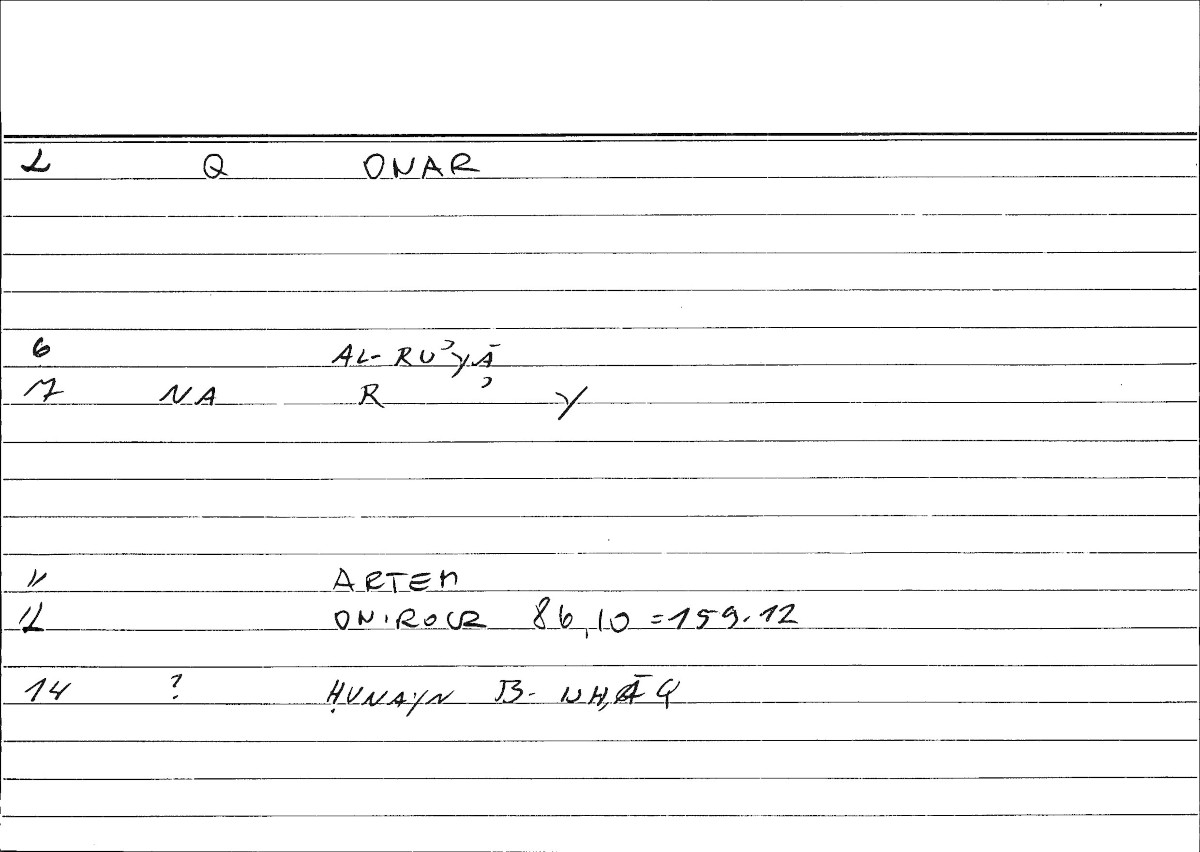 2 Q ONAR
6 AL-RUʾYĀ
7 NA R ʾ Y
11 ARTEM
12 ONIROCR 86,10 = 159.12
14 ? ḤUNAYN B-